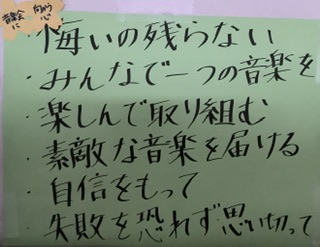 音楽会に
向かう心
・悔いの残らない
・みんなで一つの音楽を
・楽しんで取り組む
・素敵な音楽を届ける
・自信をもって
・失敗を恐れず思い切って